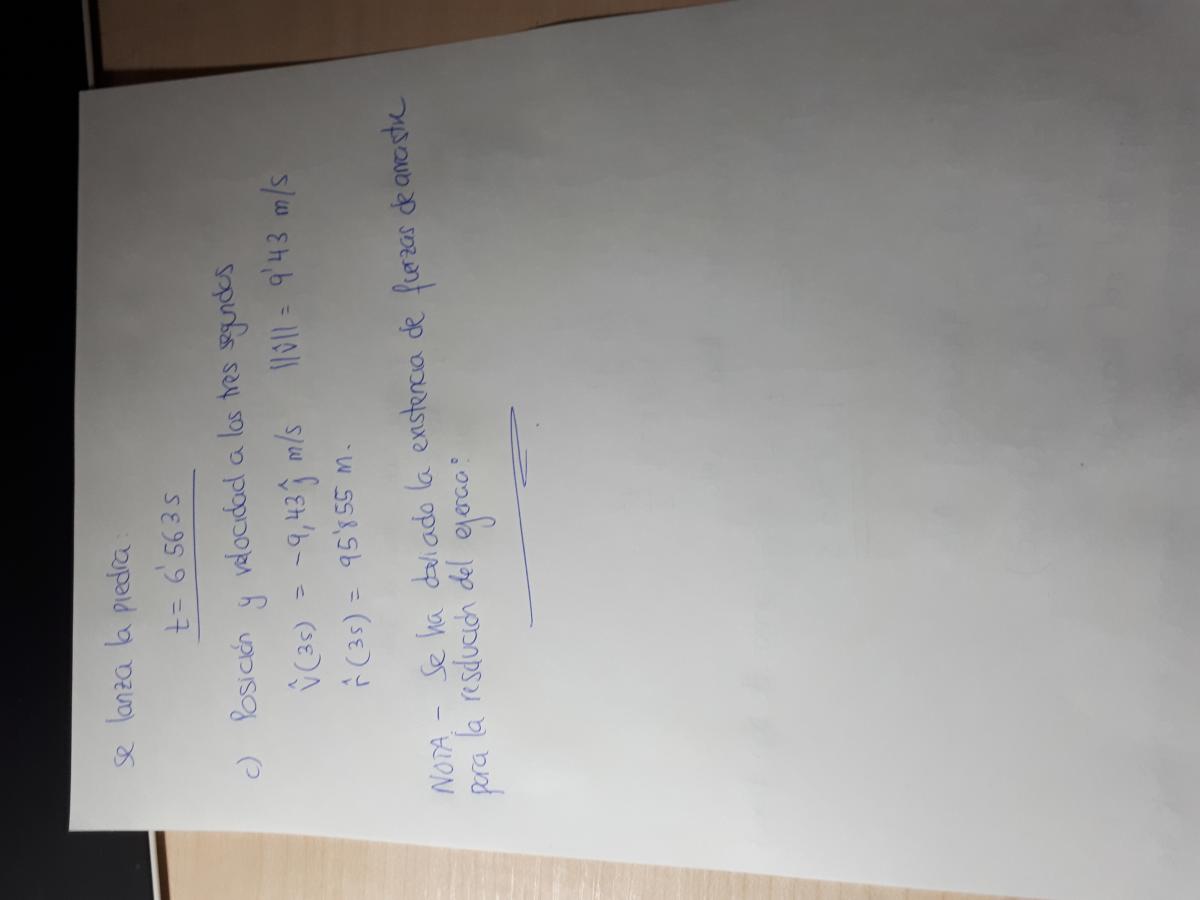 se lanza la piedra:
t= 6'563 s
c) Posición y velocidad a los tres segundos
v̂(3s) = -9,43 ĵ m/s ||v̂|| = 9'43 m/s
r̂(3s) = 95'855 m.
NOTA - Se ha obviado la existencia de fuerzas de arrastre
para la resolución del ejercicio